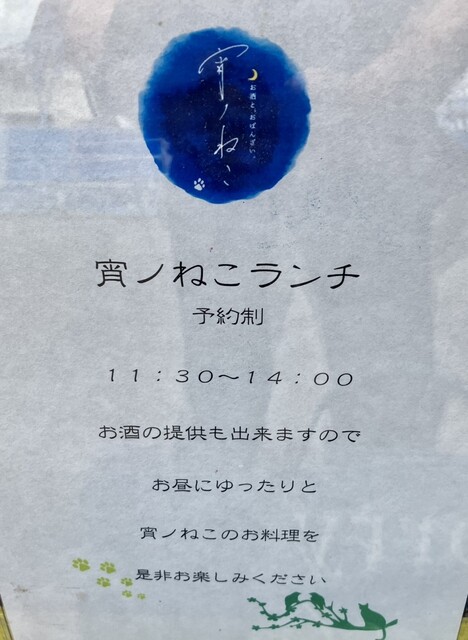 宵ノねこ
お酒と、おばんざい。
宵ノねこランチ
予約制
11：30～14：00
お酒の提供も出来ますので
お昼にゆったりと
宵ノねこのお料理を
是非お楽しみください